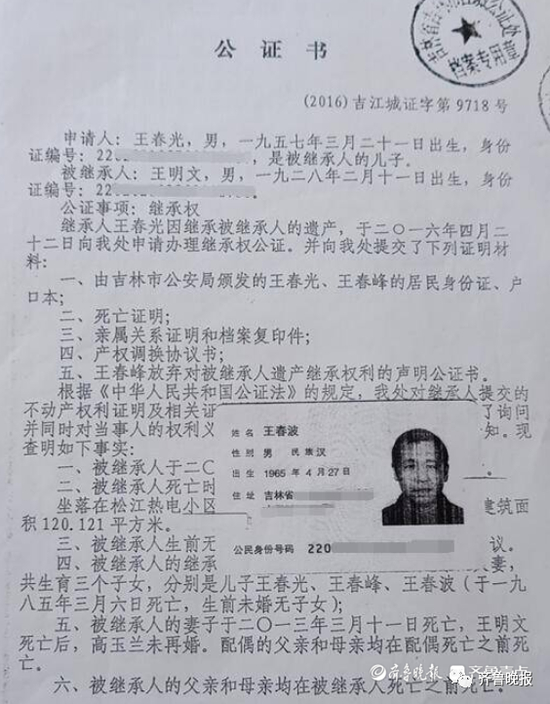 公证书
档案专用章
(2016)吉江城证字第9718号
申请人：王春光，男，一九五七年三月二十一日出生，身份
证编号：220
，是被继承人的儿子。
被继承人：王明文，男，一九二八年二月十一日出生，身份
证编号：220
公证事项：继承权
继承人王春光因继承被继承人的遗产，于二〇一六年四月二
十二日向我处申请办理继承权公证。并向我处提交了下列证明材
料：
一、由吉林市公安局颁发的王春光、王春峰的居民身份证、户
口本；
二、死亡证明；
三、亲属关系证明和档案复印件；
四、产权调换协议书；
五、王春峰放弃对被继承人遗产继承权利的声明公证书。
根据《中华人民共和国公证法》的规定，我处对继承人提交的
不动产权利证明及相关证
了询问
并同时对当事人的权利义
知。现
查明如下事实：
一、被继承人于二〇
二、被继承人死亡时
坐落在松江热电小区
建筑面
积120.121平方米。
三、被继承人生前无
议。
四、被继承人的继承
妻，
共生育三个子女，分别是儿子王春光、王春峰、王春波（于一九
八五年三月六日死亡，生前未婚无子女）；
五、被继承人的妻子于二〇一三年三月十一日死亡，王明文
死亡后，高玉兰未再婚。配偶的父亲和母亲均在配偶死亡之前死
亡。
六、被继承人的父亲和母亲均在被继承人死亡之前死亡。
姓名 王春波
性别 男 民族 汉
出生 1965 年 4 月 27 日
住址 吉林省
公民身份号码 220
齐鲁晚报 齐鲁壹点
齐鲁晚报